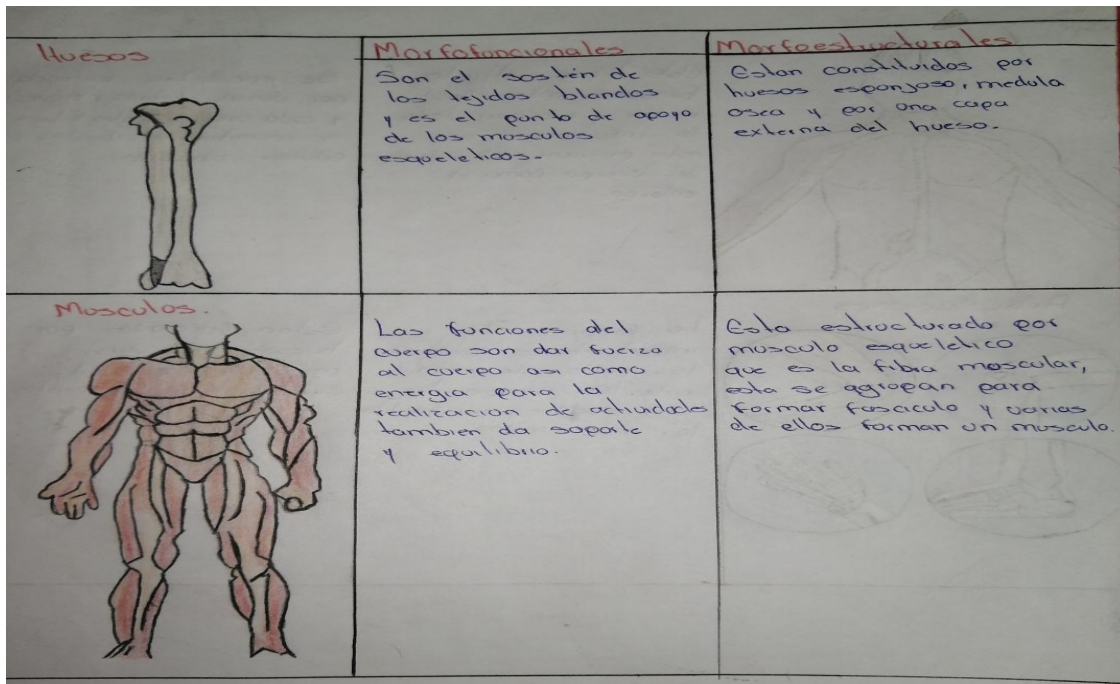 Huesos
Morfofuncionales
Son el sostén de
los tejidos blandos
y es el punto de apoyo
de los musculos
esqueleticos.
Morfoestructurales
Estan constituidos por
huesos esponjoso, medula
osea y por una capa
externa del hueso.
Musculos.
Las funciones del
cuerpo son dar fuerza
al cuerpo asi como
energia para la
realizacion de actividades
tambien da soporte
y equilibrio.
Esta estructurado por
musculo esqueletico
que es la fibra muscular,
esta se agrupan para
formar fasciculo y varias
de ellos forman un musculo.